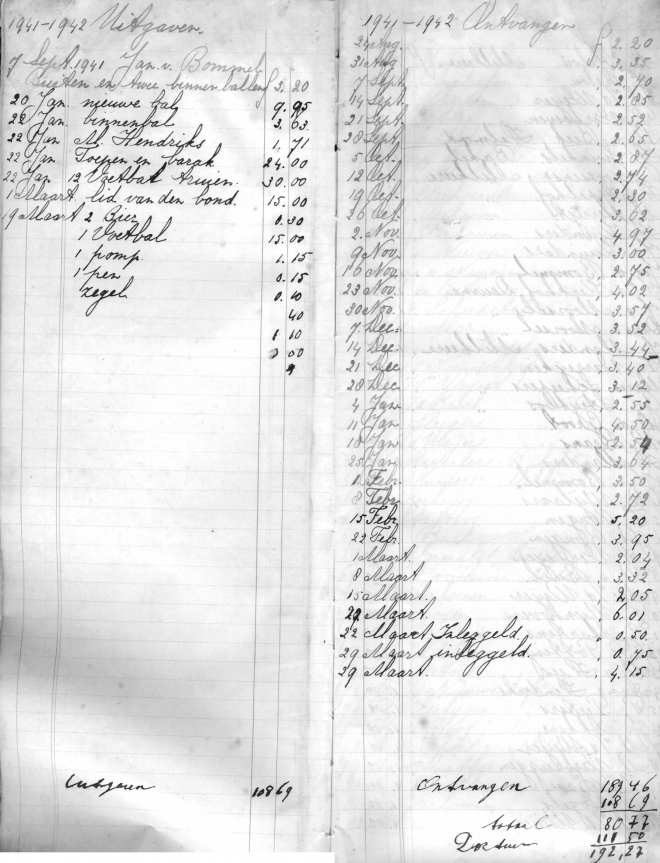 1941-1942 Uitgaven.
7 Sept. 1941 Jan v. Bommel
Buiten en twee binnenballen f 3.20
20 Jan. nieuwe bal 9.95
22 Jan. binnenbal 3.03
22 Jan. M. Hendriks 1.71
22 Jan Toepen en barak 24.00
22 Jan 12 Voetbal truien 30.00
1 Maart. lid van den bond. 15.00
19 Maart 2 Bier 0.30
1 Voetbal 15.00
1 pomp. 1.15
1 pen 0.15
zegel 0.10
40
1 10
3 00
1941-1942 Ontvangen
24 Aug. f 2.20
31 Aug 3.35
7 Sept. 2.70
14 Sept. 2.85
21 Sept. 2.52
28 Sept. 2.65
5 Oct. 2.87
12 Oct. 2.74
19 Oct. 2.30
26 Oct. 3.62
2. Nov. 4.97
9 Nov. 3.00
16 Nov. 2.75
23 Nov. 4.02
30 Nov. 3.57
7 Dec. 3.52
14 Dec. 3.44
21 Dec 3.40
28 Dec 3.12
4 Jan 2.55
11 Jan 4.50
18 Jan 2.54
25 Jan 3.04
1 Febr. 3.50
8 Febr. 2.72
15 Febr. 5.20
22 Febr. 3.95
1 Maart. 2.04
8 Maart 3.32
15 Maart. 2.05
22 Maart. 6.01
22 Maart Inleggeld. 0.50
29 Maart inleggeld. 0.75
29 Maart. 4.15
Uitgaven 108 69
Ontvangen 189 46
108 69
totaal 80 77
111 50
192,27